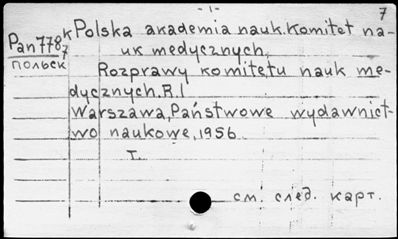 -1-
7
Pan778k/7 Polska akademia nauk. Komitet na-
uk medycznych.
польск
Rozprawy komitetu nauk me-
dycznych. R.1
Warszawa, Państwowe wydawnict-
wo naukowe, 1956
т.
см. след. карт.